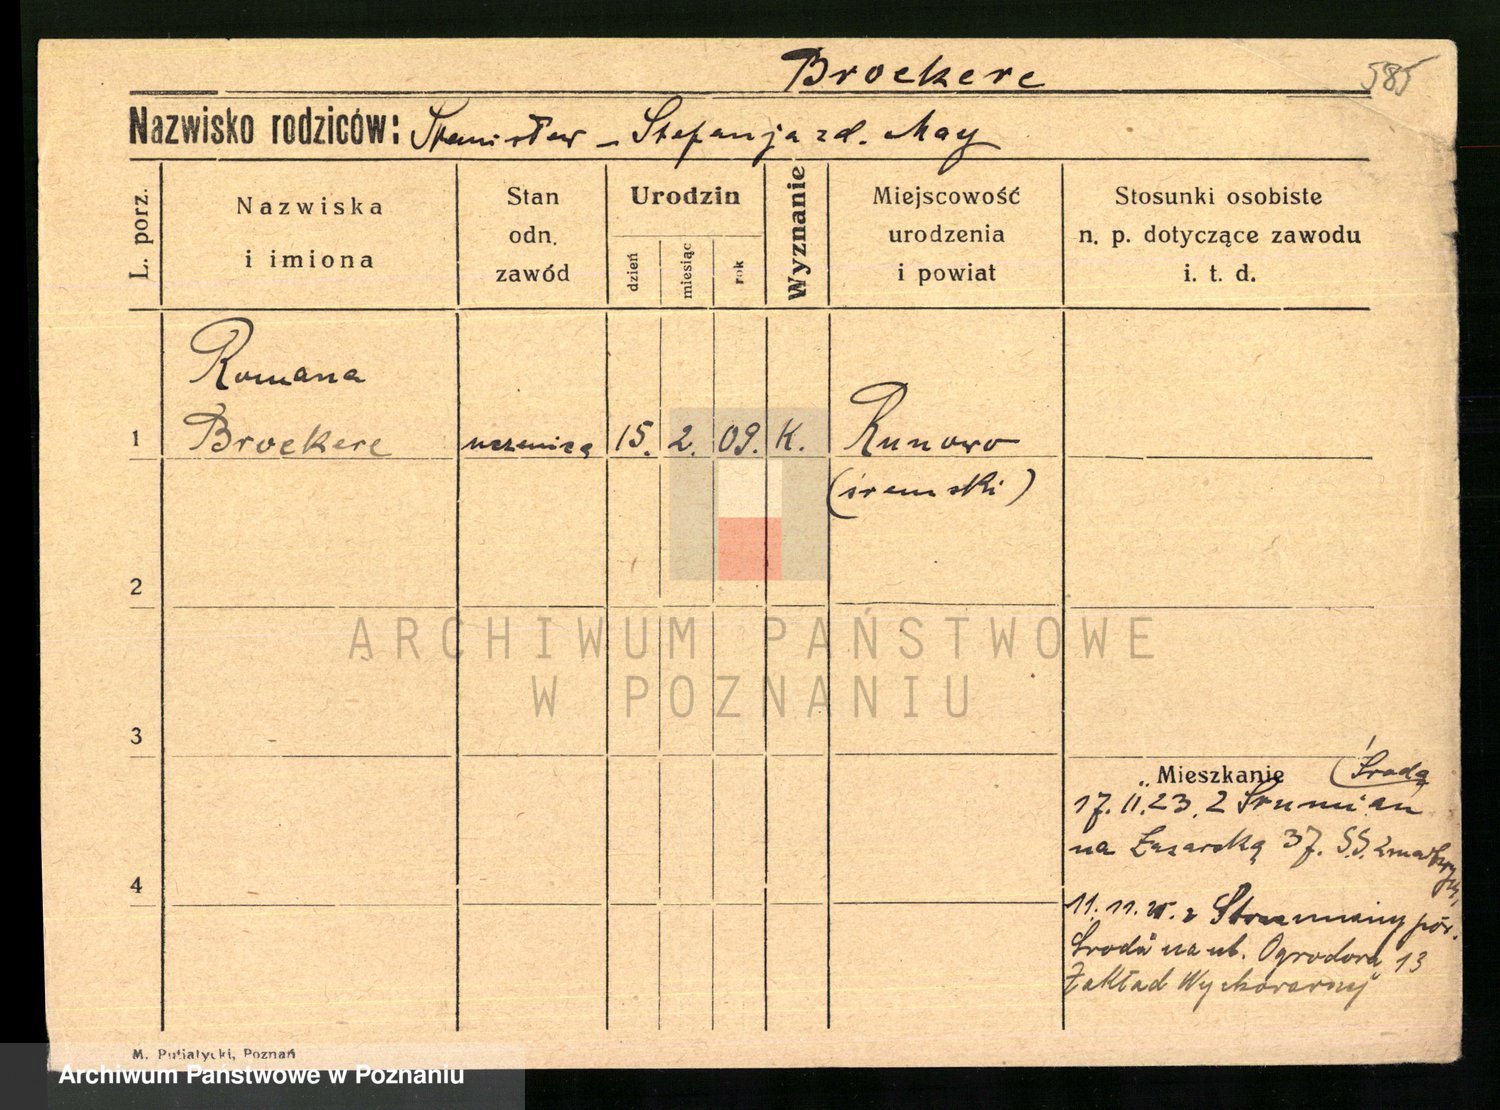 Broekere
585
Nazwisko rodziców: Stanisław - Stefanja zd. May
L. porz.
Nazwiska
i imiona
Stan
odn.
zawód
Urodzin
dzień
miesiąc
rok
Wyznanie
Miejscowość
urodzenia
i powiat
Stosunki osobiste
n. p. dotyczące zawodu
i. t. d.
Romana
1 Broekere uczenica 15. 2. 09. K. Runowo
(śremski)
2
ARCHIWUM PAŃSTWOWE
W POZNANIU
3
Mieszkanie (Środa
17. II. 23. z
na Łazarską 37. S.S.
4
11. 11. z Strumiany pow.
Środa na ul. Ogrodową 13
Zakład Wychowawczy
M. Putiatycki, Poznań
Archiwum Państwowe w Poznaniu